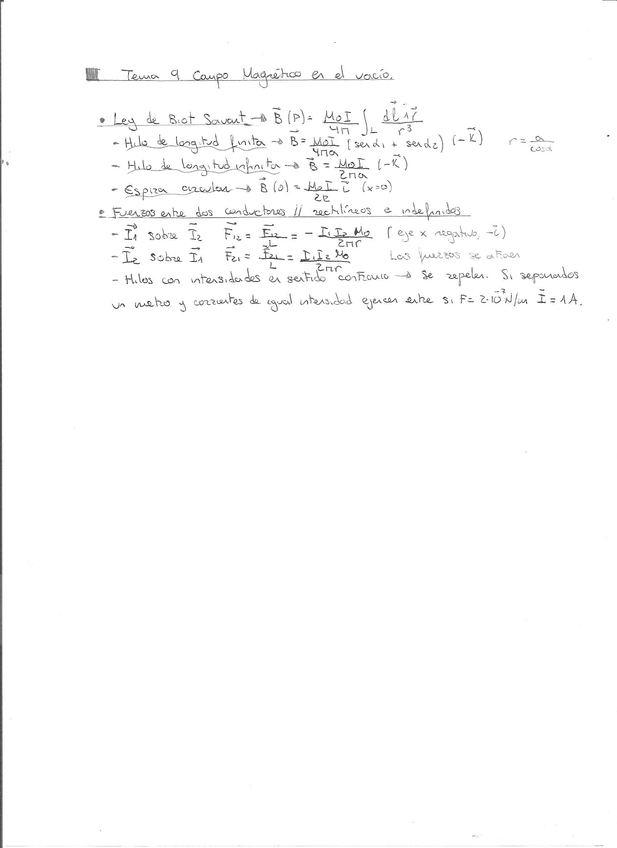 Tema 9 Campo Magnético en el vacío.
• Ley de Biot Savart → B⃗(P) = μ0I/4π ∫L dl⃗ ∧ r⃗ / r³
- Hilo de longitud finita → B⃗ = μ0I/4πa (senα1 + senα2) (-k⃗) r = a/cosα
- Hilo de longitud infinita → B⃗ = μ0I/2πa (-k⃗)
- Espira circular → B⃗(0) = μ0I/2R i⃗ (x=0)
• Fuerzas entre dos conductores // rectilíneos e indefinidos
- I⃗1 sobre I⃗2 F⃗12 = F⃗12/L = - I1I2μ0/2πr (eje x negativo, -i⃗)
- I⃗2 sobre I⃗1 F⃗21 = F⃗21/L = I1I2μ0/2πr Las fuerzas se atraen
- Hilos con intensidades en sentido contrario → Se repelen. Si separados
un metro y corrientes de igual intensidad ejercen entre si F = 2·10⁻⁷ N/m I⃗ = 1A.